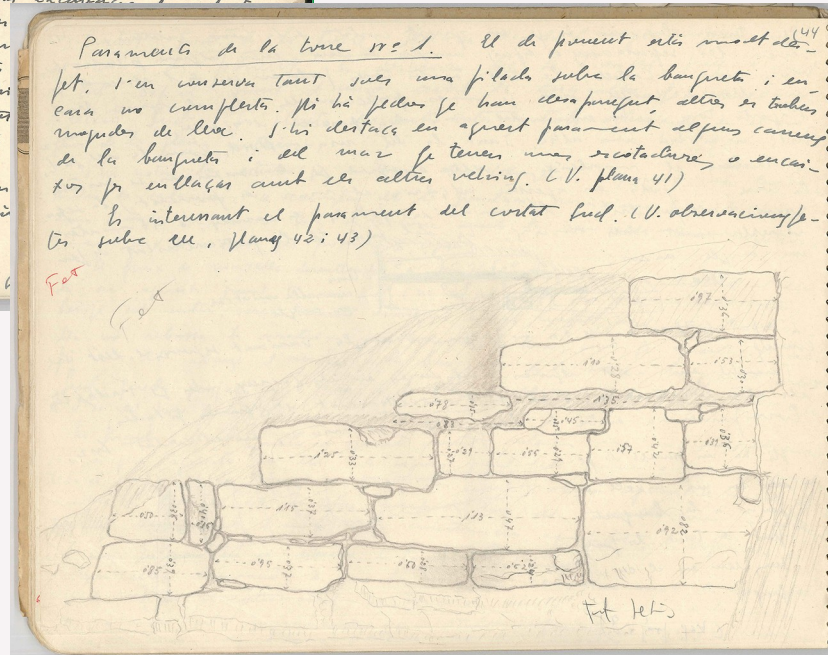 (44
Paraments de la torre nº 1. El de ponent està molt des-
fet. S'en conserva tant sols una filada sobre la banqueta i en-
cara no complerta. Hi hà pedres qe han desaparegut, altres es troben
mogudes de lloc. S'hi destaca en aquest parament alguns carreus
de la banqueta i del mur qe tenen unes escotadures o encai-
xos per enllaçar amb els altres veïns. (V. plana 41)
Es interessant el parament del costat Sud. (V. observacions fe-
tes sobre ell, planes 42 i 43)
Fet
Fet
0'97
0'36
1'10
0'53
0'78
1'35
0'83
0'45
1'25
0'33
0'39
0'55
0'37
0'36
0'50
1'15
0'37
1'13
0'47
0'92
0'82
0'85
0'95
0'37